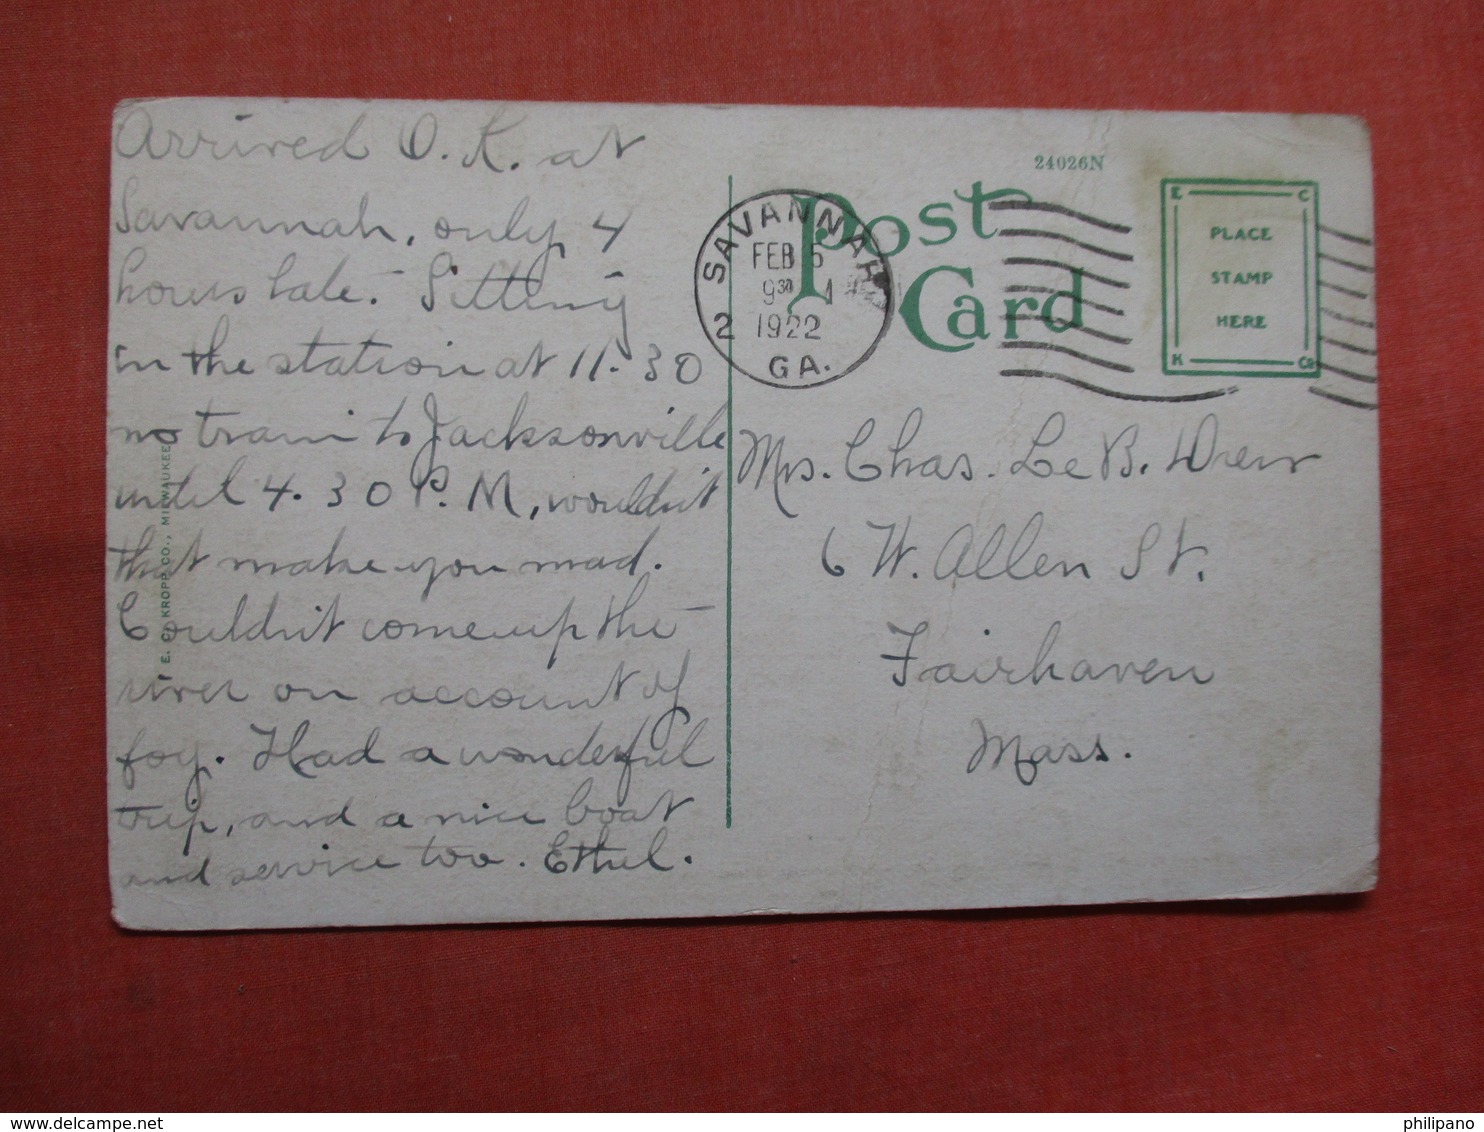 Arrived O.K. at
Savannah, only 4
hours late. Sitting
in the station at 11.30
no train to Jacksonville
until 4.30 P.M, wouldn't
that make you mad.
Couldn't come up the
river on account of
fog. Had a wonderful
trip, and a nice boat
and service too. Ethel.
E. C. KROPP CO., MILWAUKEE
24026N
Post
Card
SAVANNAH
FEB 5
930
1922
2
GA.
E C
PLACE
STAMP
HERE
K Co
Mrs. Chas. Le B. Drew
6 W. Allen St.
Fairhaven
Mass.
delcampe.net
philipano